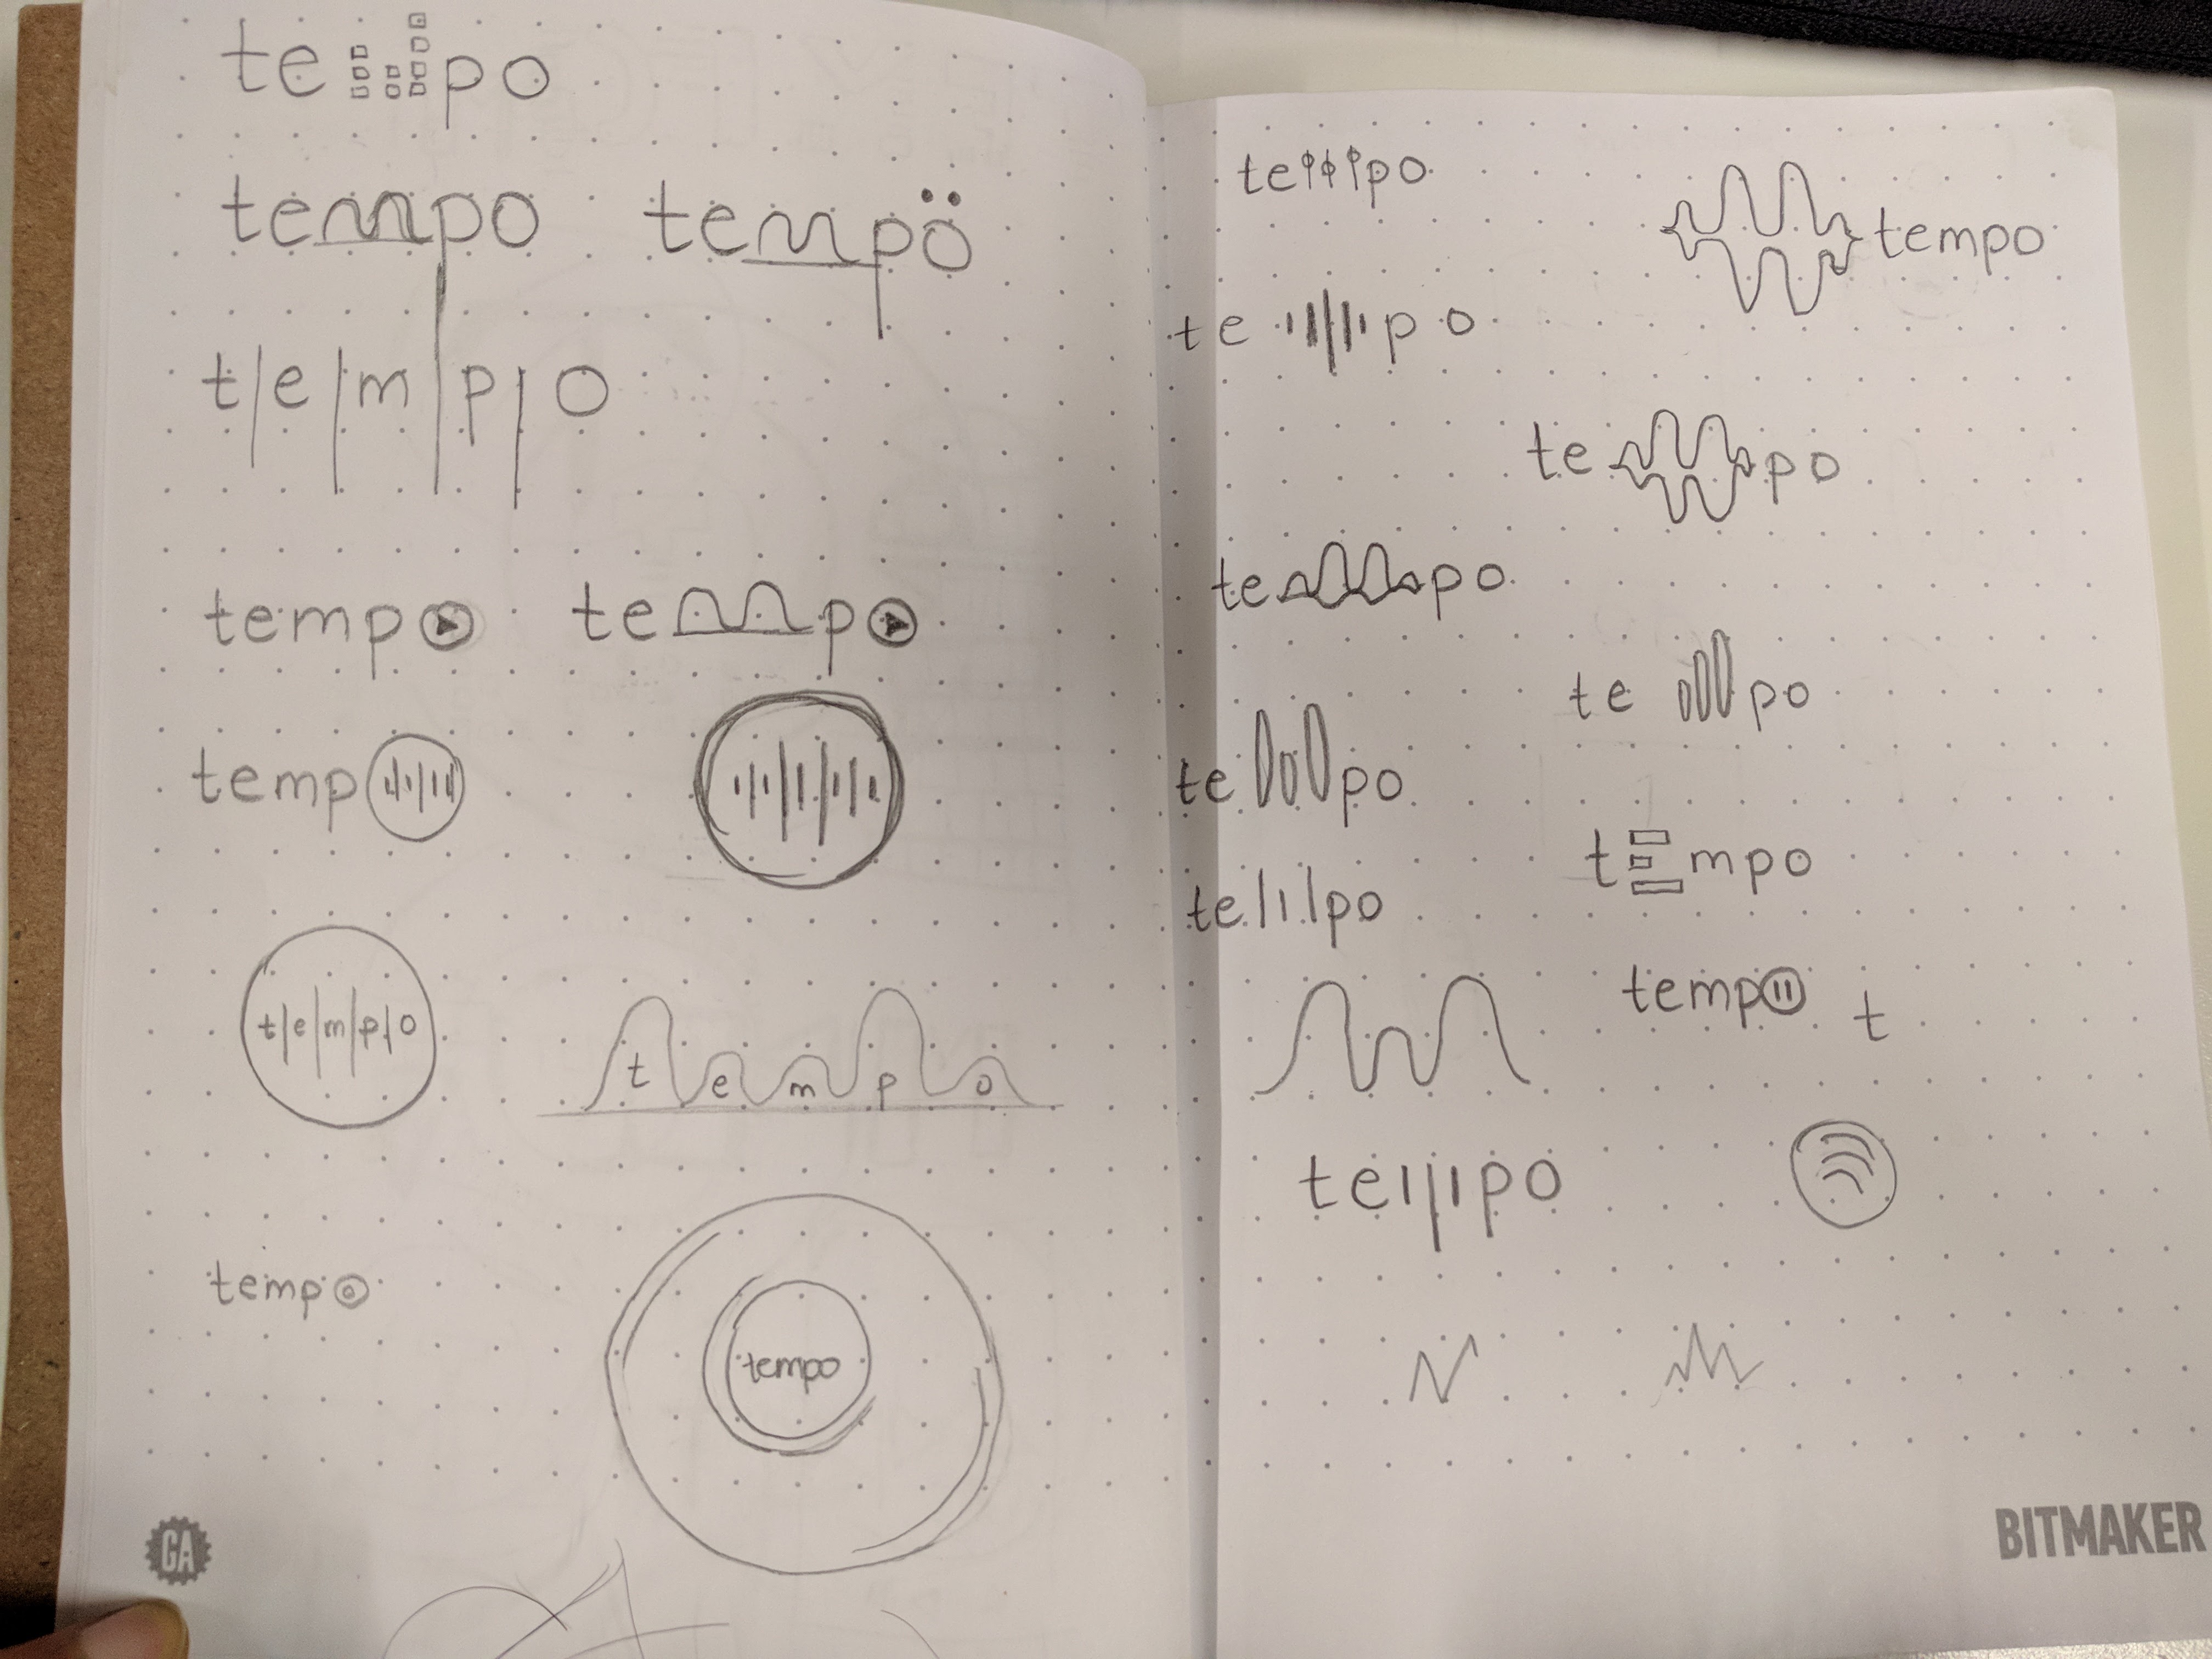 te po
tempo tempö
t|e|m|p|o
temp te po
temp
t|e|m|p|o
t e m p o
temp
tempo
GA
te po
tempo
te po
te po
te po
te po
te po
t mpo
te po
temp t
te po
BITMAKER